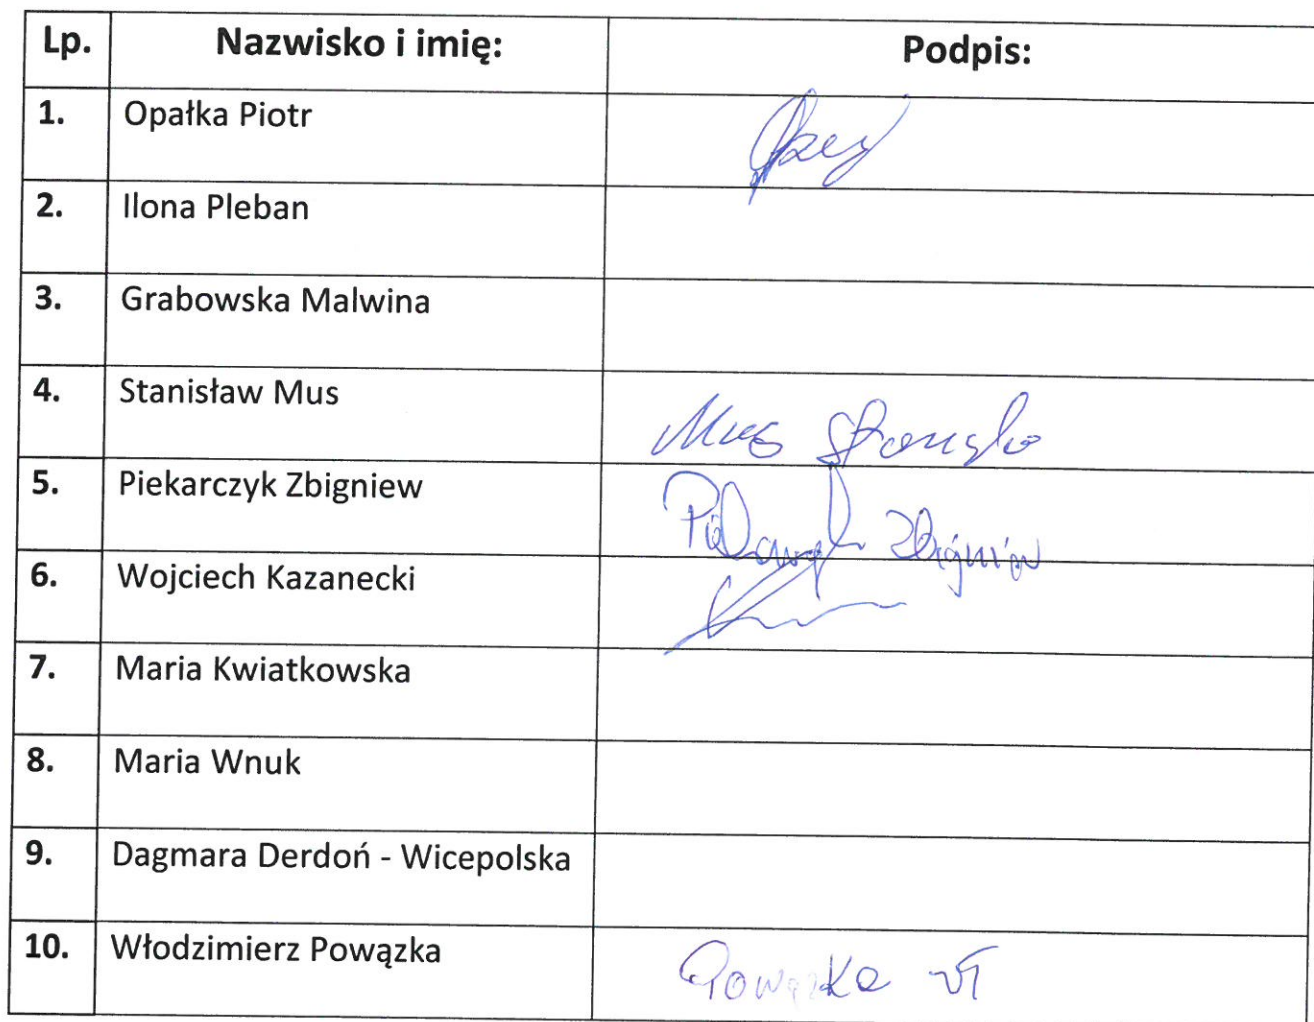 Lp. Nazwisko i imię: Podpis:
1. Opałka Piotr
2. Ilona Pleban
3. Grabowska Malwina
4. Stanisław Mus Mus
5. Piekarczyk Zbigniew Zbigniew
6. Wojciech Kazanecki
7. Maria Kwiatkowska
8. Maria Wnuk
9. Dagmara Derdoń - Wicepolska
10. Włodzimierz Powązka Powązka Wł